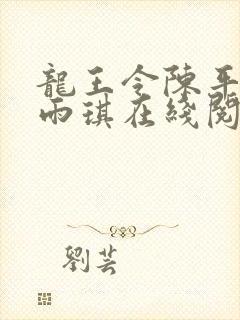 龍王令陳平
雨琪在綫閱
劉芸